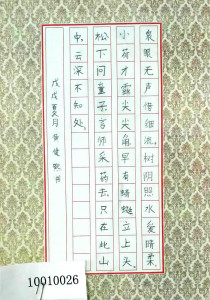 泉眼无声惜细流,树阴照水爱晴柔.
小荷才露尖尖角早有蜻蜓立上头.
松下问童子,言师采药去.只在此山
中,云深不知处.
戊戌夏月书
10010026